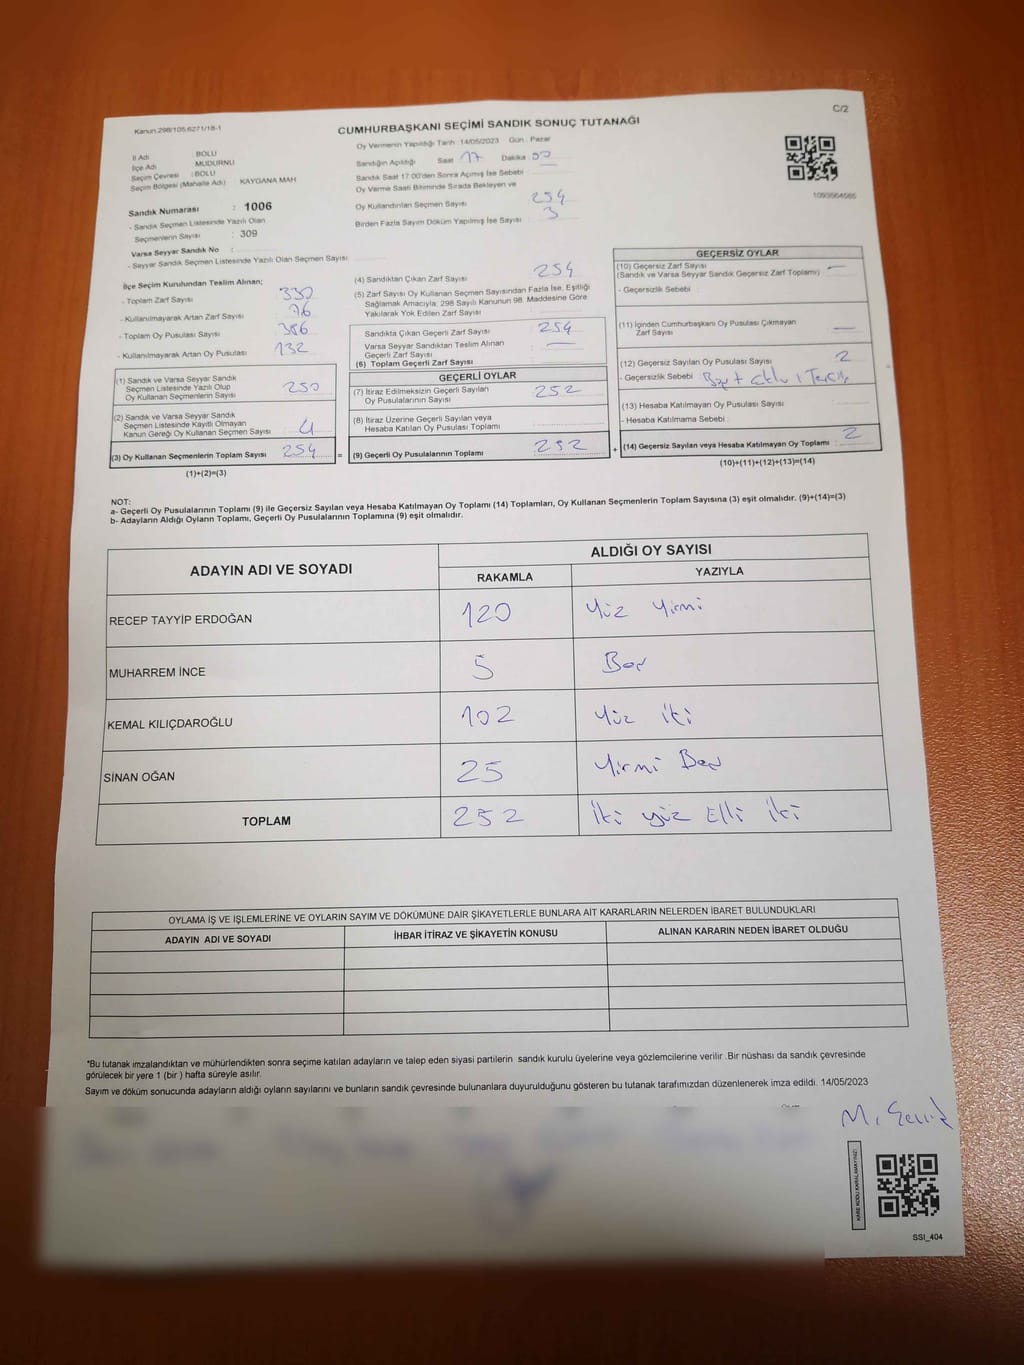 C/2
Kanun:298/105.6271/18-1
CUMHURBAŞKANI SEÇİMİ SANDIK SONUÇ TUTANAĞI
İl Adı : BOLU
İlçe Adı MUDURNU
Seçim Çevresi : BOLU
Seçim Bölgesi (Mahalle Adı) KAYGANA MAH
Sandık Numarası : 1006
- Sandık Seçmen Listesinde Yazılı Olan
Seçmenlerin Sayısı : 309
Varsa Seyyar Sandık No :
- Seyyar Sandık Seçmen Listesinde Yazılı Olan Seçmen Sayısı:
Oy Vermenin Yapıldığı Tarih :14/05/2023 Gün : Pazar
Sandığın Açıldığı Saat 17 Dakika :
Sandık Saat 17:00'den Sonra Açılmış İse Sebebi :
Oy Verme Saati Bitiminde Sırada Bekleyen ve
Oy Kullandırılan Seçmen Sayısı 254
Birden Fazla Sayım Döküm Yapılmış İse Sayısı : 3
1093564585
İlçe Seçim Kurulundan Teslim Alınan;
- Toplam Zarf Sayısı 330
- Kullanılmayarak Artan Zarf Sayısı 76
- Toplam Oy Pusulası Sayısı 386
- Kullanılmayarak Artan Oy Pusulası 132
(1) Sandık ve Varsa Seyyar Sandık
Seçmen Listesinde Yazılı Olup
Oy Kullanan Seçmenlerin Sayısı 250
(2) Sandık ve Varsa Seyyar Sandık
Seçmen Listesinde Kayıtlı Olmayan
Kanun Gereği Oy Kullanan Seçmen Sayısı 4
(3) Oy Kullanan Seçmenlerin Toplam Sayısı 254 =
(1)+(2)=(3)
(4) Sandıktan Çıkan Zarf Sayısı 254
(5) Zarf Sayısı Oy Kullanan Seçmen Sayısından Fazla İse, Eşitliği
Sağlamak Amacıyla, 298 Sayılı Kanunun 98. Maddesine Göre
Yakılarak Yok Edilen Zarf Sayısı
Sandıkta Çıkan Geçerli Zarf Sayısı 254
Varsa Seyyar Sandıktan Teslim Alınan
Geçerli Zarf Sayısı —
(6) Toplam Geçerli Zarf Sayısı
GEÇERLİ OYLAR
(7) İtiraz Edilmeksizin Geçerli Sayılan
Oy Pusulalarının Sayısı 252
(8) İtiraz Üzerine Geçerli Sayılan veya
Hesaba Katılan Oy Pusulası Toplamı
(9) Geçerli Oy Pusulalarının Toplamı 252 +
GEÇERSİZ OYLAR
(10) Geçersiz Zarf Sayısı —
(Sandık ve Varsa Seyyar Sandık Geçersiz Zarf Toplamı)
- Geçersizlik Sebebi
(11) İçinden Cumhurbaşkanı Oy Pusulası Çıkmayan
Zarf Sayısı —
(12) Geçersiz Sayılan Oy Pusulası Sayısı 2
- Geçersizlik Sebebi
(13) Hesaba Katılmayan Oy Pusulası Sayısı
- Hesaba Katılmama Sebebi
(14) Geçersiz Sayılan veya Hesaba Katılmayan Oy Toplamı 2
(10)+(11)+(12)+(13)=(14)
NOT:
a- Geçerli Oy Pusulalarının Toplamı (9) ile Geçersiz Sayılan veya Hesaba Katılmayan Oy Toplamı (14) Toplamları, Oy Kullanan Seçmenlerin Toplam Sayısına (3) eşit olmalıdır. (9)+(14)=(3)
b- Adayların Aldığı Oyların Toplamı, Geçerli Oy Pusulalarının Toplamına (9) eşit olmalıdır.
ADAYIN ADI VE SOYADI ALDIĞI OY SAYISI
RAKAMLA YAZIYLA
RECEP TAYYİP ERDOĞAN 120 Yüz Yirmi
MUHARREM İNCE 5 Beş
KEMAL KILIÇDAROĞLU 102 Yüz iki
SİNAN OĞAN 25 Yirmi Beş
TOPLAM 252 iki yüz Elli iki
OYLAMA İŞ VE İŞLEMLERİNE VE OYLARIN SAYIM VE DÖKÜMÜNE DAİR ŞİKAYETLERLE BUNLARA AİT KARARLARIN NELERDEN İBARET BULUNDUKLARI
ADAYIN ADI VE SOYADI İHBAR İTİRAZ VE ŞİKAYETİN KONUSU ALINAN KARARIN NEDEN İBARET OLDUĞU
*Bu tutanak imzalandıktan ve mühürlendikten sonra seçime katılan adayların ve talep eden siyasi partilerin sandık kurulu üyelerine veya gözlemcilerine verilir .Bir nüshası da sandık çevresinde
görülecek bir yere 1 (bir ) hafta süreyle asılır.
Sayım ve döküm sonucunda adayların aldığı oyların sayılarını ve bunların sandık çevresinde bulunanlara duyurulduğunu gösteren bu tutanak tarafımızdan düzenlenerek imza edildi. 14/05/2023
KARE KODU KARALAMAYINIZ!
SSI_404